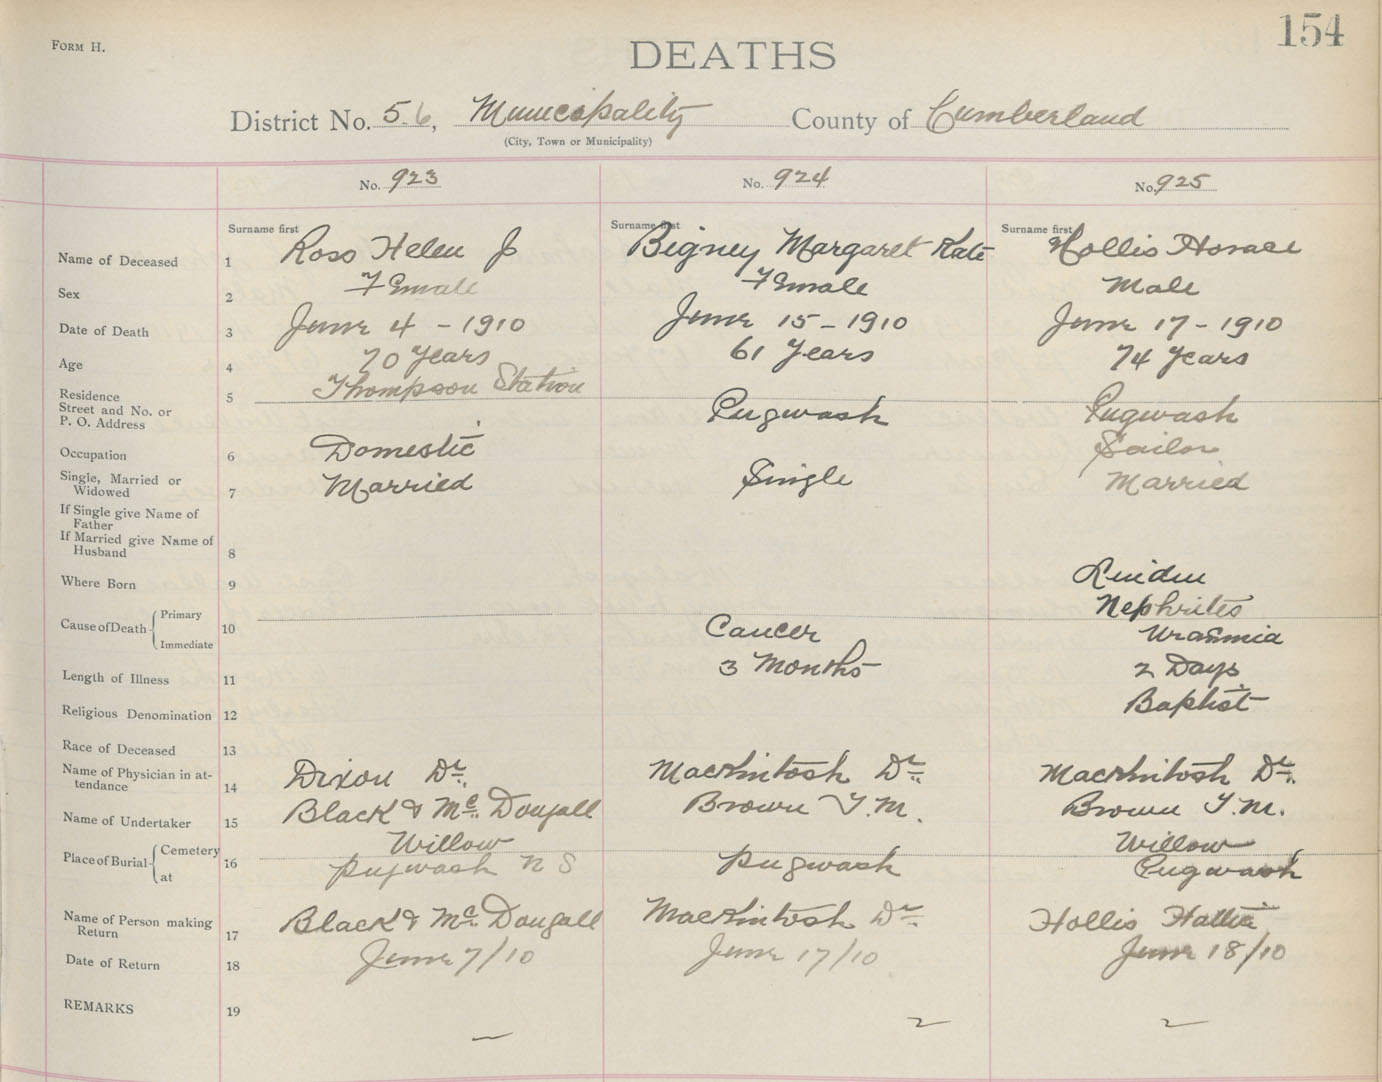 FORM H.
154
DEATHS
District No. 5-6, Municipality County of Cumberland
(City, Town or Municipality)
No. 923 No. 924 No. 925
Surname first Surname first Surname first
Name of Deceased 1 Ross Helen J Bigney Margaret Kate Hollis Horace
Sex 2 Female Female Male
Date of Death 3 June 4 - 1910 June 15 - 1910 June 17 - 1910
Age 4 70 Years 61 Years 74 Years
Residence 5 Thompson Station
Street and No. or
P. O. Address Pugwash Pugwash
Occupation 6 Domestic Sailor
Single, Married or
Widowed 7 Married Single Married
If Single give Name of
Father
If Married give Name of
Husband 8
Where Born 9 Linden
Cause of Death Primary Nephrites
10 Immediate Cancer Uraemia
Length of Illness 11 3 Months 2 Days
Religious Denomination 12 Baptist
Race of Deceased 13
Name of Physician in at-
tendance 14 Dixon Dr. MacKintosh Dr. MacKintosh Dr.
Name of Undertaker 15 Black & McDougall Brown T.M. Brown T.M.
Place of Burial Cemetery Willow Willow
16 at Pugwash N S Pugwash Pugwash
Name of Person making
Return 17 Black & McDougall MacKintosh Dr. Hollis Hattie
Date of Return 18 June 7/10 June 17/10 June 18/10
REMARKS 19